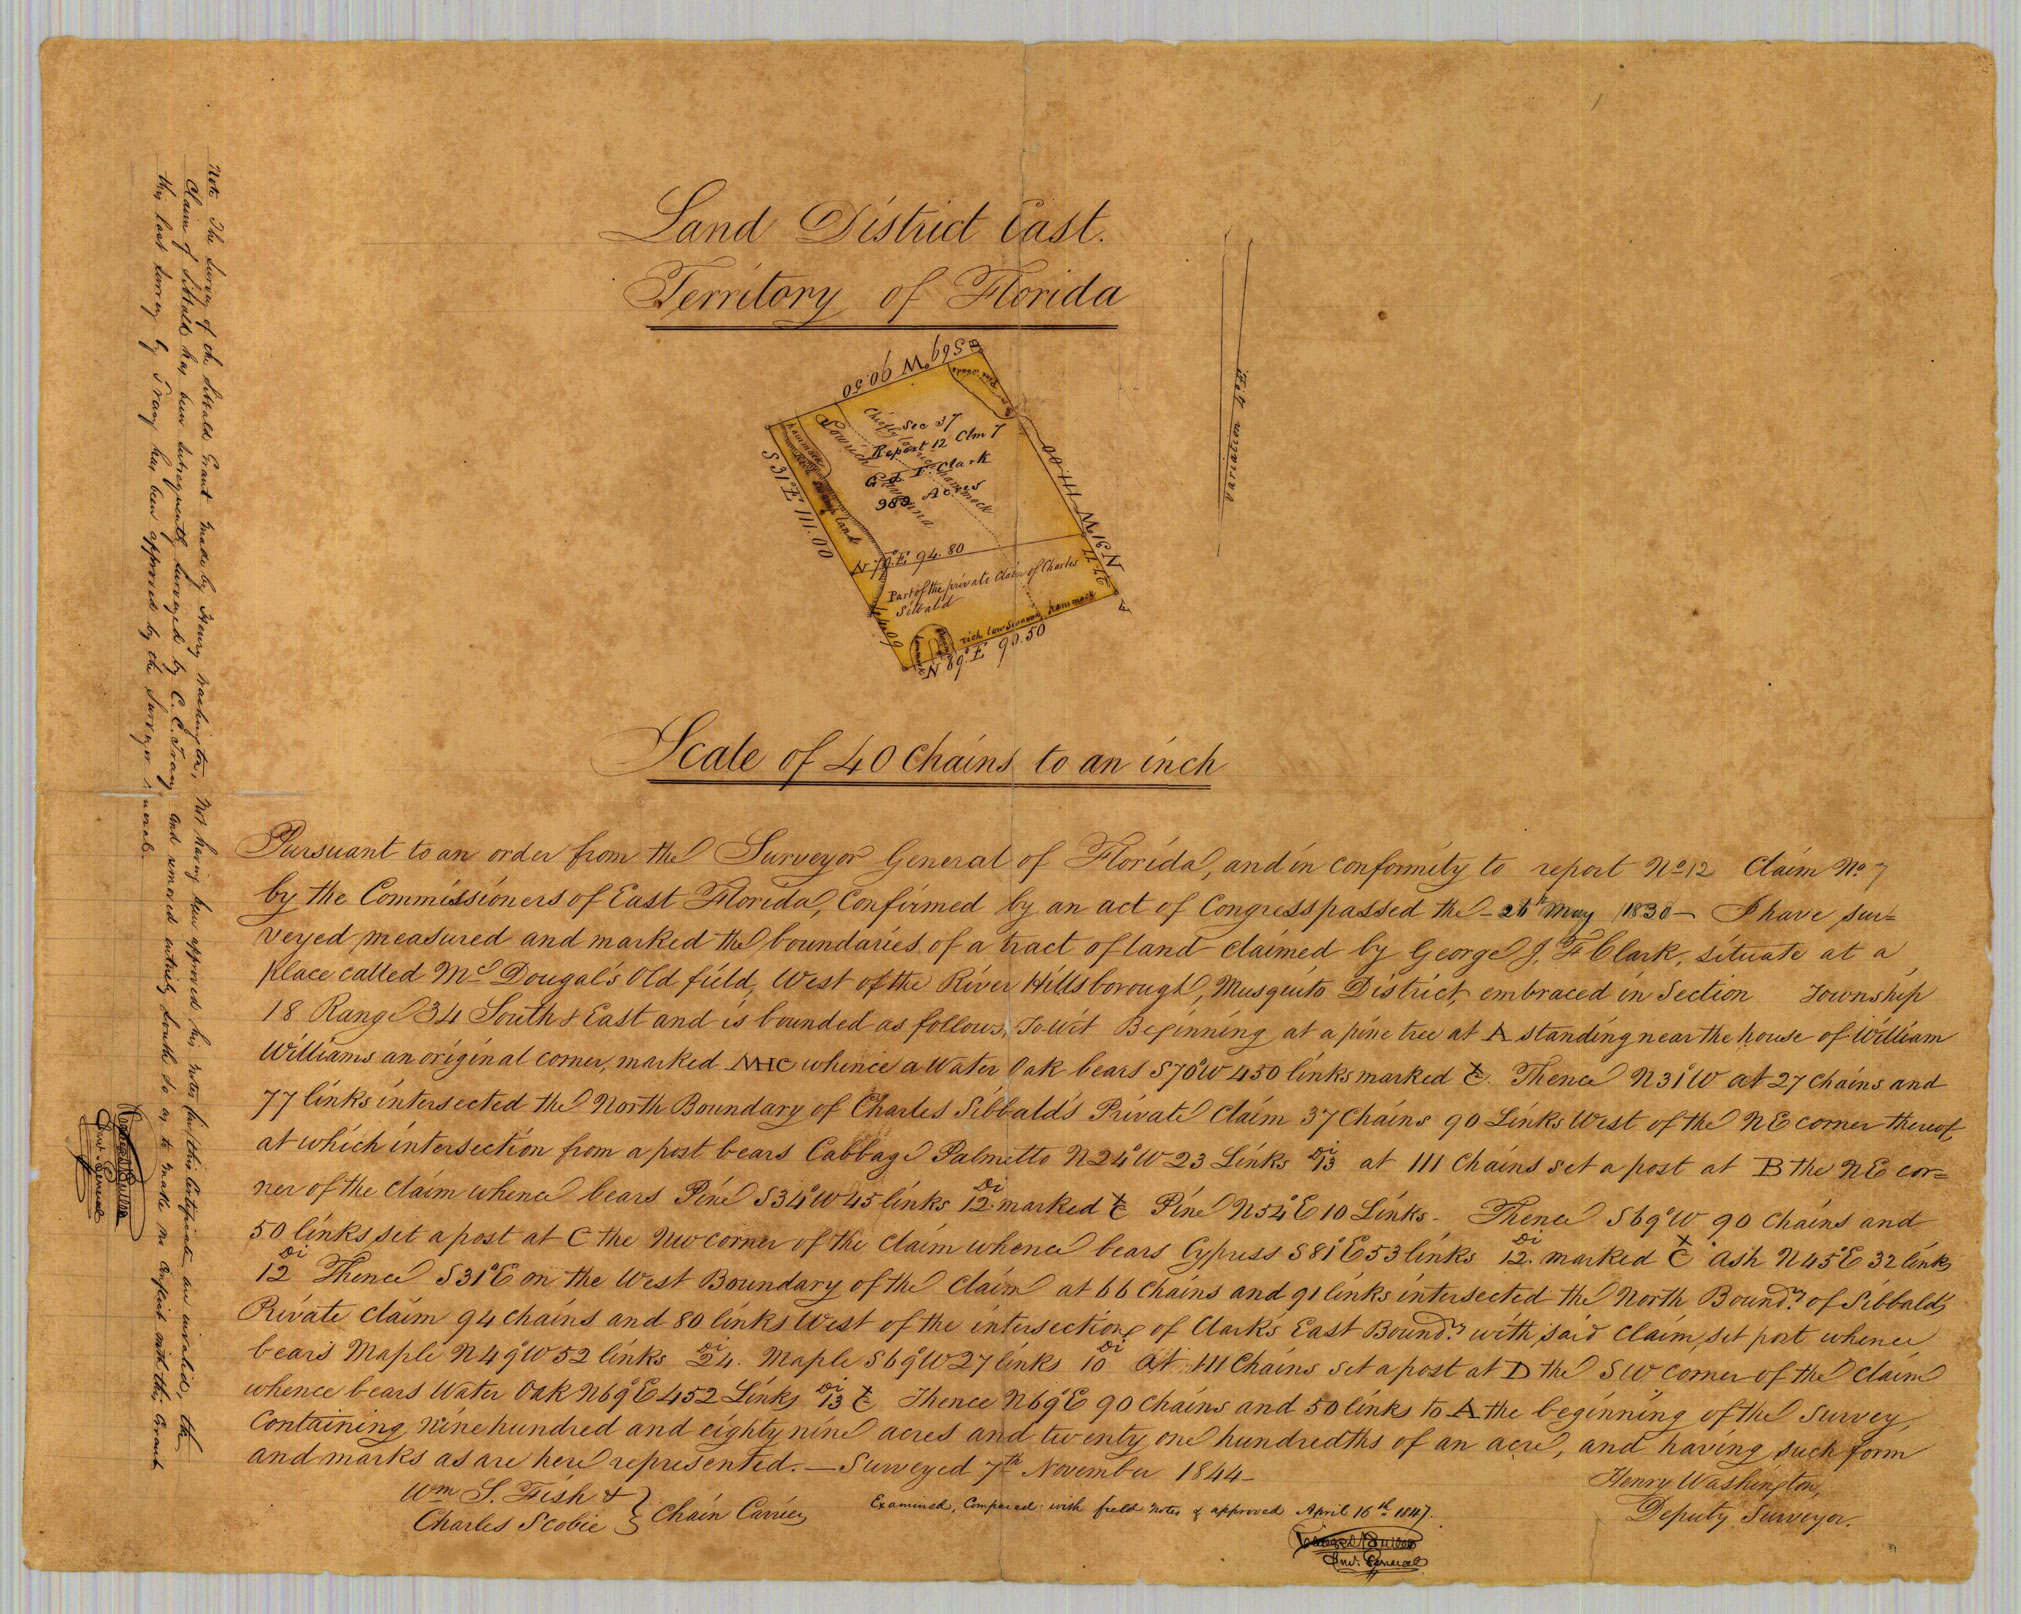 Land District East.
Territory of Florida
B S 69° W 90.50
Pine woods
N 31° W 111.00
27.77
A
S 31° E 111.00
44.09
N 69° E 90.50
hammock
land
Sec 37
Report 12 Clm 7
G J F. Clark
989 Acres
N 79° E. 94.80
Part of the private Claim of Charles
Sibald
rich low Savanna hammock
Variation 4° E.
Scale of 40 Chains to an inch
Pursuant to an order from the Surveyor General of Florida, and in conformity to report No 12 Claim No. 7
by the Commissioners of East Florida, Confirmed by an act of Congress passed the - 26th May 1830 - I have sur=
veyed measured and marked the boundaries of a tract of land claimed by George J. F Clark, situate at a
place called Mc Dougal's Old field, West of the River Hillsborough, Musquito District, embraced in Section Township
18 Range 34 South & East and is bounded as follows, To Wit Beginning at a pine tree at A standing near the house of William
Williams an original corner, marked whence a Water Oak bears S70°W 450 links marked C. Thence N31°W at 27 chains and
77 links intersected the North Boundary of Charles Sibbald's Private Claim 37 Chains 90 Links West of the NE corner thereof,
at which intersection from a post bears Cabbage Palmetto N24°W 23 Links Di 13 at 111 Chains set a post at B the NE cor=
ner of the claim whence bears Pine S34°W 45 links Di 12. marked C Pine N54°E 10 Links - Thence S69°W 90 Chains and
50 links set a post at C the NW corner of the claim whence bears Cypress S81°E 53 links Di 12. marked C Ash N45°E 32 links
Di 12 Thence S31°E on the West Boundary of the claim at 66 chains and 91 links intersected the North Boundy. of Sibbald's
Private claim 94 chains and 80 links West of the intersection of Clark's East Boundy. with said claim, set post whence
bears Maple N49°W 52 links Di 24. Maple S69°W 27 links Di 10 at 111 Chains set a post at D the SW corner of the claim
whence bears Water Oak N69°E 452 Links Di 13 C Thence N69°E 90 chains and 50 links to A the beginning of the Survey,
Containing nine hundred and eighty nine acres and twenty one hundredths of an acre, and having such form
and marks as are here represented. — Surveyed 7th November 1844 -
Henry Washington,
Deputy Surveyor.
Wm S. Fish &
Charles Scobie } Chain Carriers
Examined, Compared with field notes & approved April 16th 1847.
Surv. General
Note The Survey of the Sibbald Grant made by Henry Washington, Not having been approved his notes for this Certificate are invalid, the
Claim of Sibbald has been subsequently surveyed by C. C. Tracy and removed entirely South so as to make no conflict with this Grant
this last survey by Tracy has been approved by the Surveyor General.
Surv. General